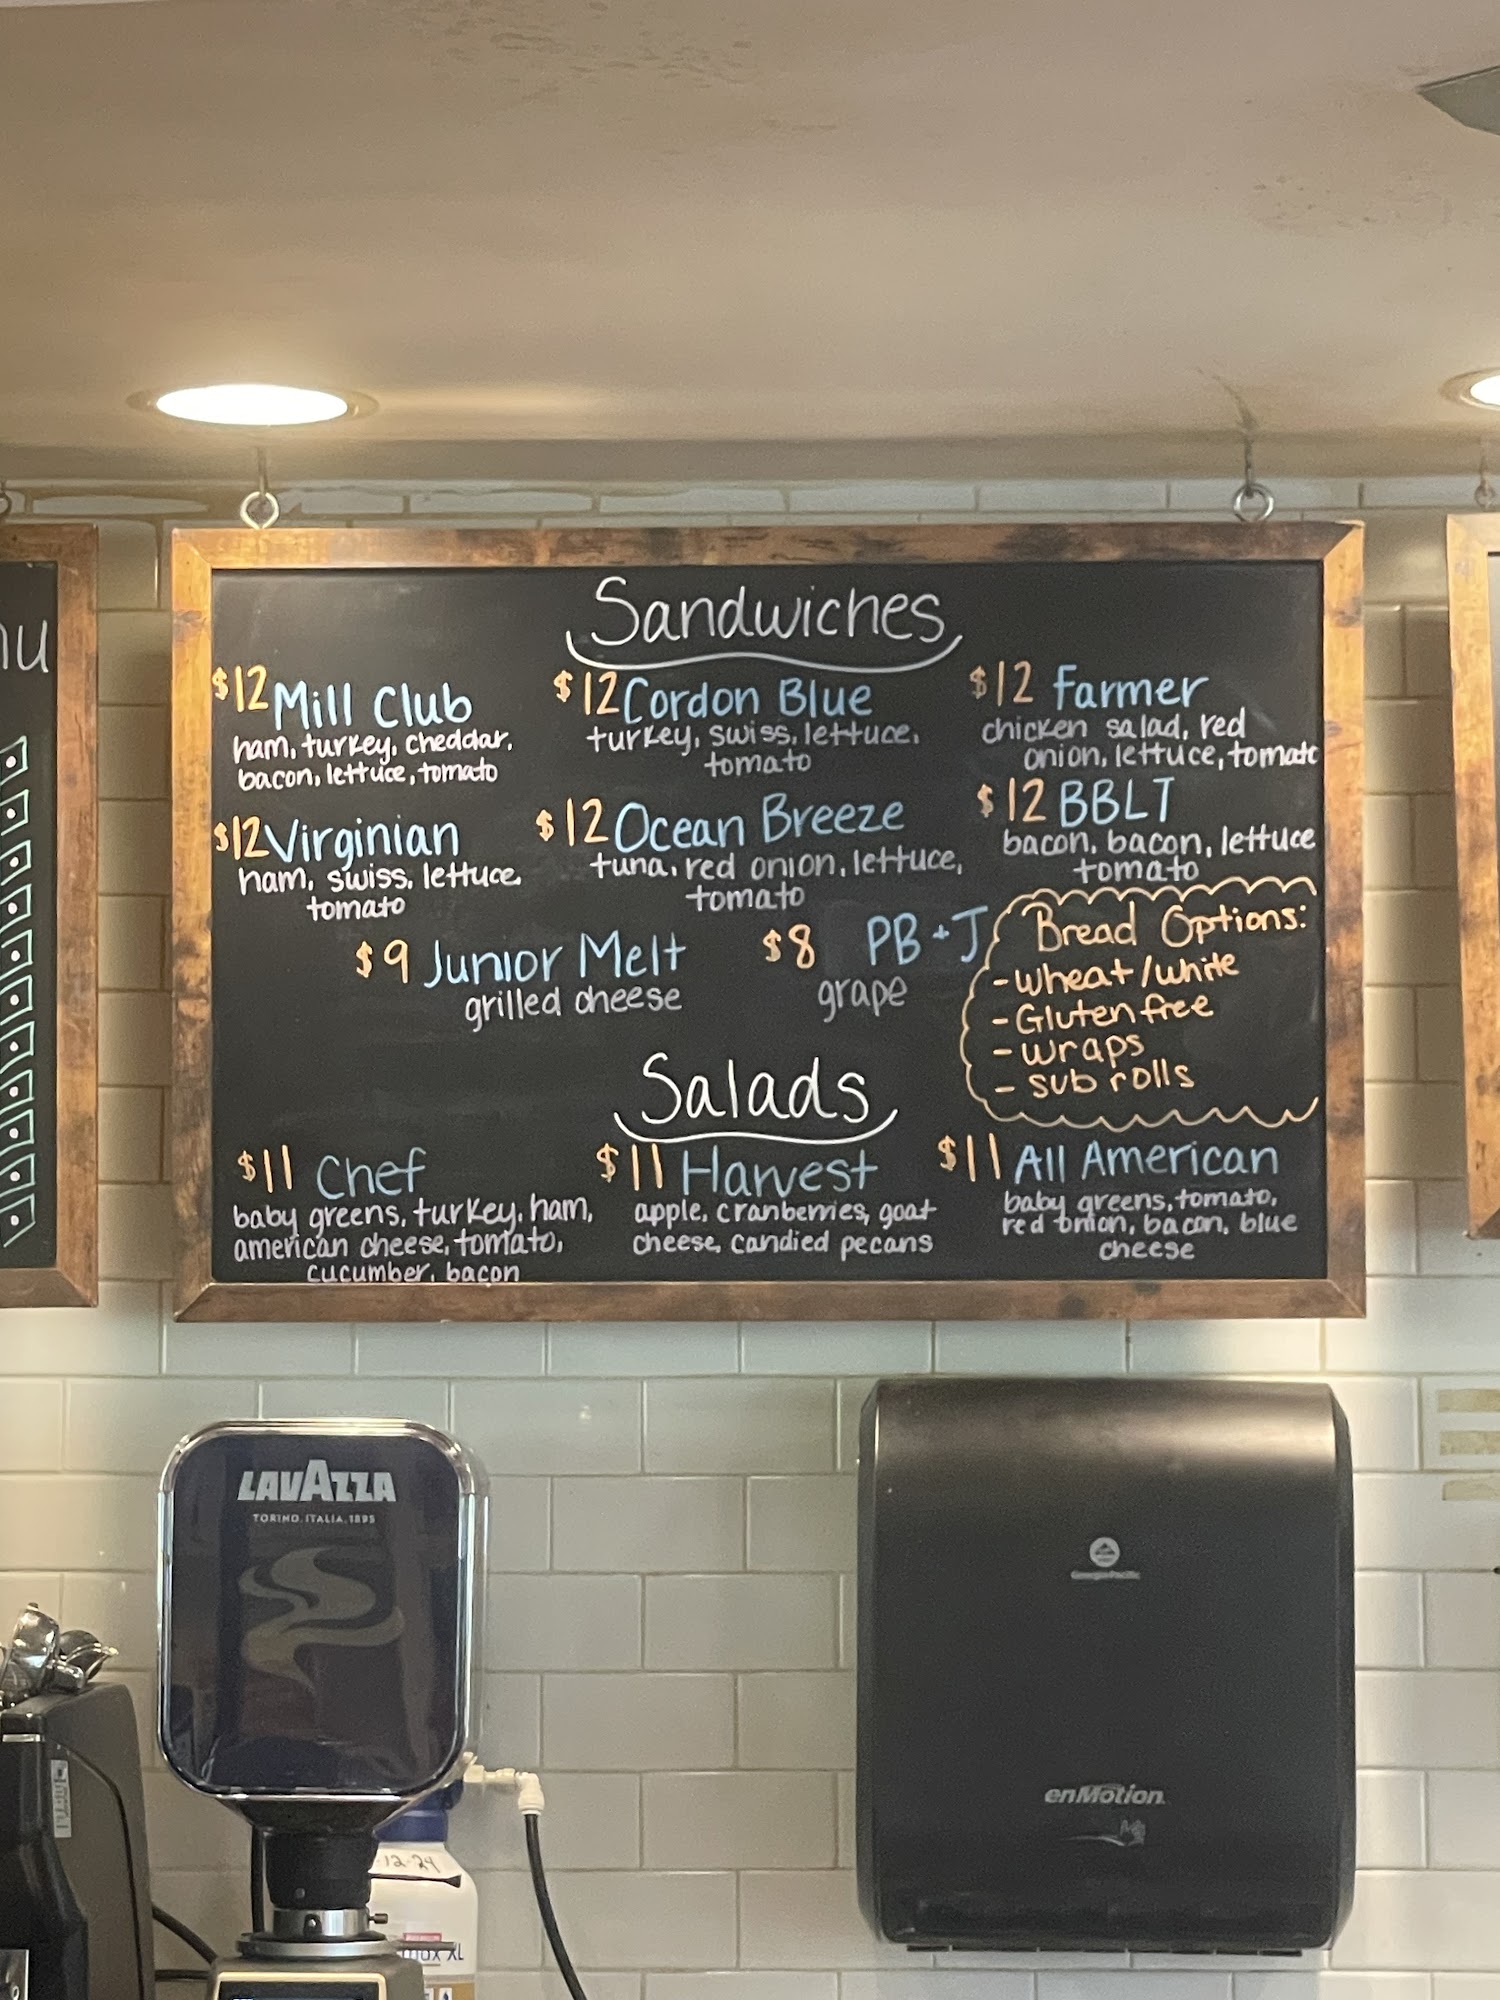 nu
Sandwiches
$12 Mill Club
ham, turkey, cheddar,
bacon, lettuce, tomato
$12 Cordon Blue
turkey, swiss, lettuce,
tomato
$12 Farmer
chicken salad, red
onion, lettuce, tomato
$12 Virginian
ham, swiss, lettuce,
tomato
$12 Ocean Breeze
tuna, red onion, lettuce,
tomato
$12 BBLT
bacon, bacon, lettuce
tomato
$9 Junior Melt
grilled cheese
$8 PB + J
grape
Bread Options:
- wheat/white
- Gluten free
- wraps
- sub rolls
Salads
$11 Chef
baby greens, turkey, ham,
american cheese, tomato,
cucumber, bacon
$11 Harvest
apple, cranberries, goat
cheese, candied pecans
$11 All American
baby greens, tomato,
red onion, bacon, blue
cheese
LAVAZZA
TORINO, ITALIA, 1895
Georgia-Pacific
enMotion
12-24
XL